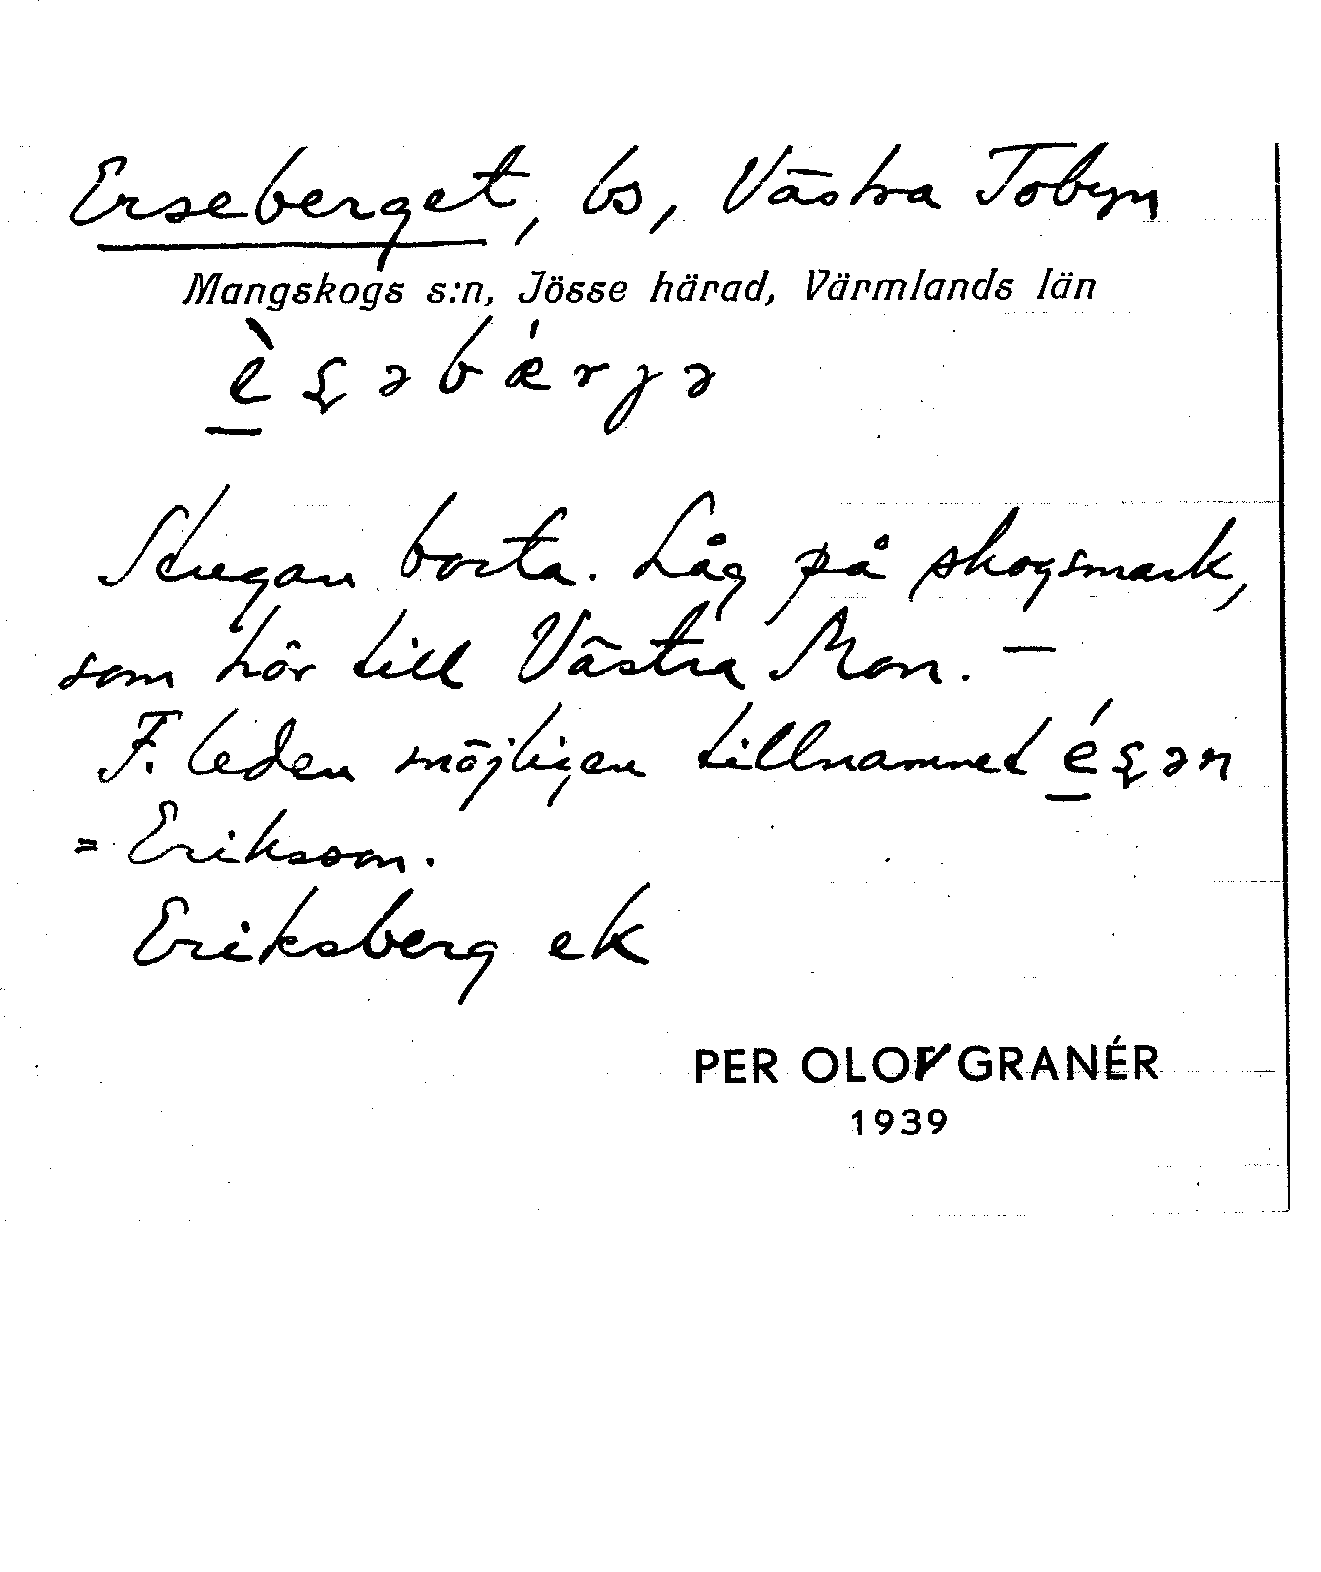 Erseberget, bs, Västra Tobyn
Mangskogs s:n, Jösse härad, Värmlands län
è̱ʂəbǽrjə
Stugan borta. Låg på skogsmark,
som hör till Västra Mon. —
F. leden möjligen tillnamnet é̱ʂən
= Eriksson.
Eriksberg ek
PER OLOV GRANÉR
1939